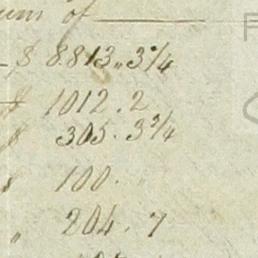 um of
$ 8.813,, 3 3/4
$ 1012. 2
$ 305. 3 3/4
$ 100.
" 204. 7